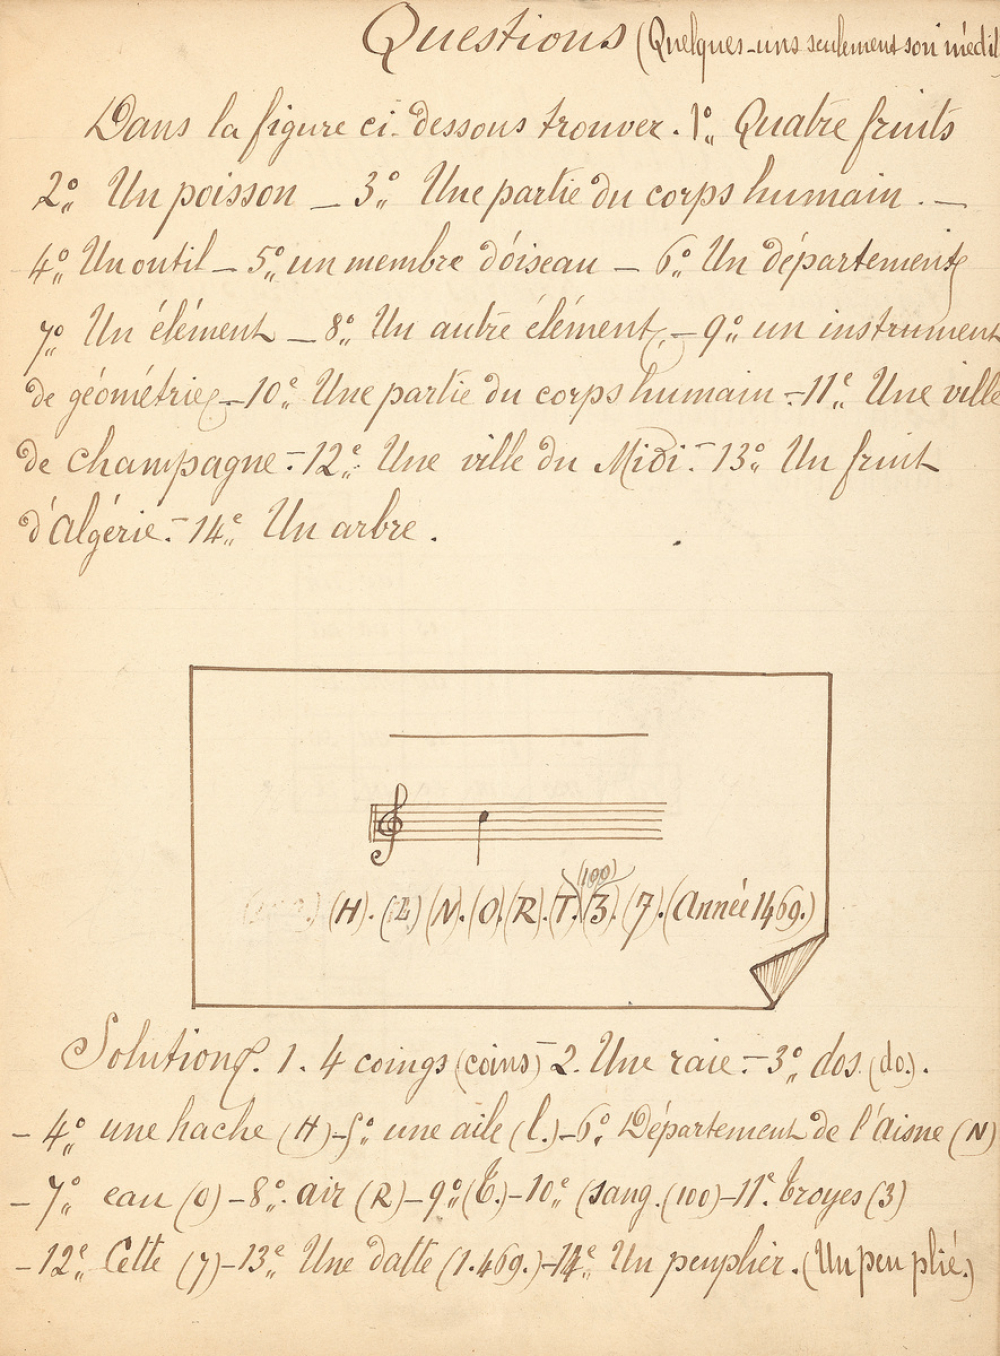 Questions (Quelques-uns seulement son inédit
Dans la figure ci-dessous trouver. 1°,, Quatre fruits
2°,, Un poisson — 3°,, Une partie du corps humain. —
4°,, Un outil — 5°,, un membre d'oiseau — 6°,, Un département
7°,, Un élément — 8°,, Un autre élément, — 9°,, un instrument
de géométrie — 10°,, Une partie du corps humain — 11°,, Une ville
de Champagne — 12°,, Une ville du Midi — 13°,, Un fruit
d'Algérie — 14°,, Un arbre.
(100)
(H). (L) (N). (O). (R). (T). (3). (7). (Année 1469.)
Solutions. 1. 4 coings (coins) — 2. Une raie — 3°,, dos. (do.).
— 4°,, une hache (H) — 5°,, une aile (l.) — 6°,, Département de l'Aisne (N)
— 7°,, eau (O) — 8°,, air (R) — 9°,, (T.) — 10°,, (sang. (100) — 11°,, Troyes (3)
— 12°,, Cette (7) — 13°,, Une datte (1.469.) — 14°,, Un peuplier. (Un peu plié.)